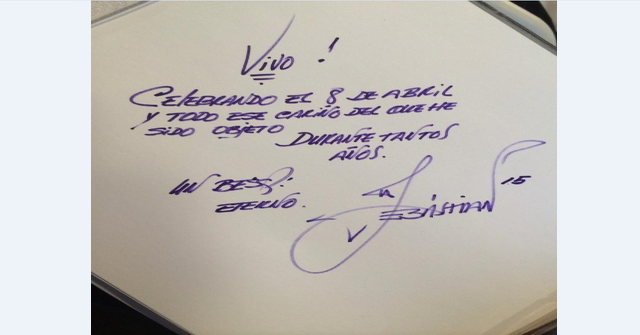 Vivo !
CELEBRANDO EL 8 DE ABRIL
Y TODO ESE CARIÑO DEL QUE HE
SIDO OBJETO DURANTE TANTOS
AÑOS.
UN BESO.
ETERNO.
SEBASTIAN 15